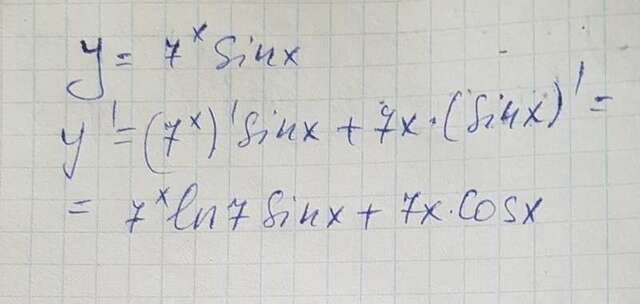 y = 7ˣ sinx
y' = (7ˣ)' sinx + 7x · (sinx)' =
= 7ˣ ln7 sinx + 7x · cosx